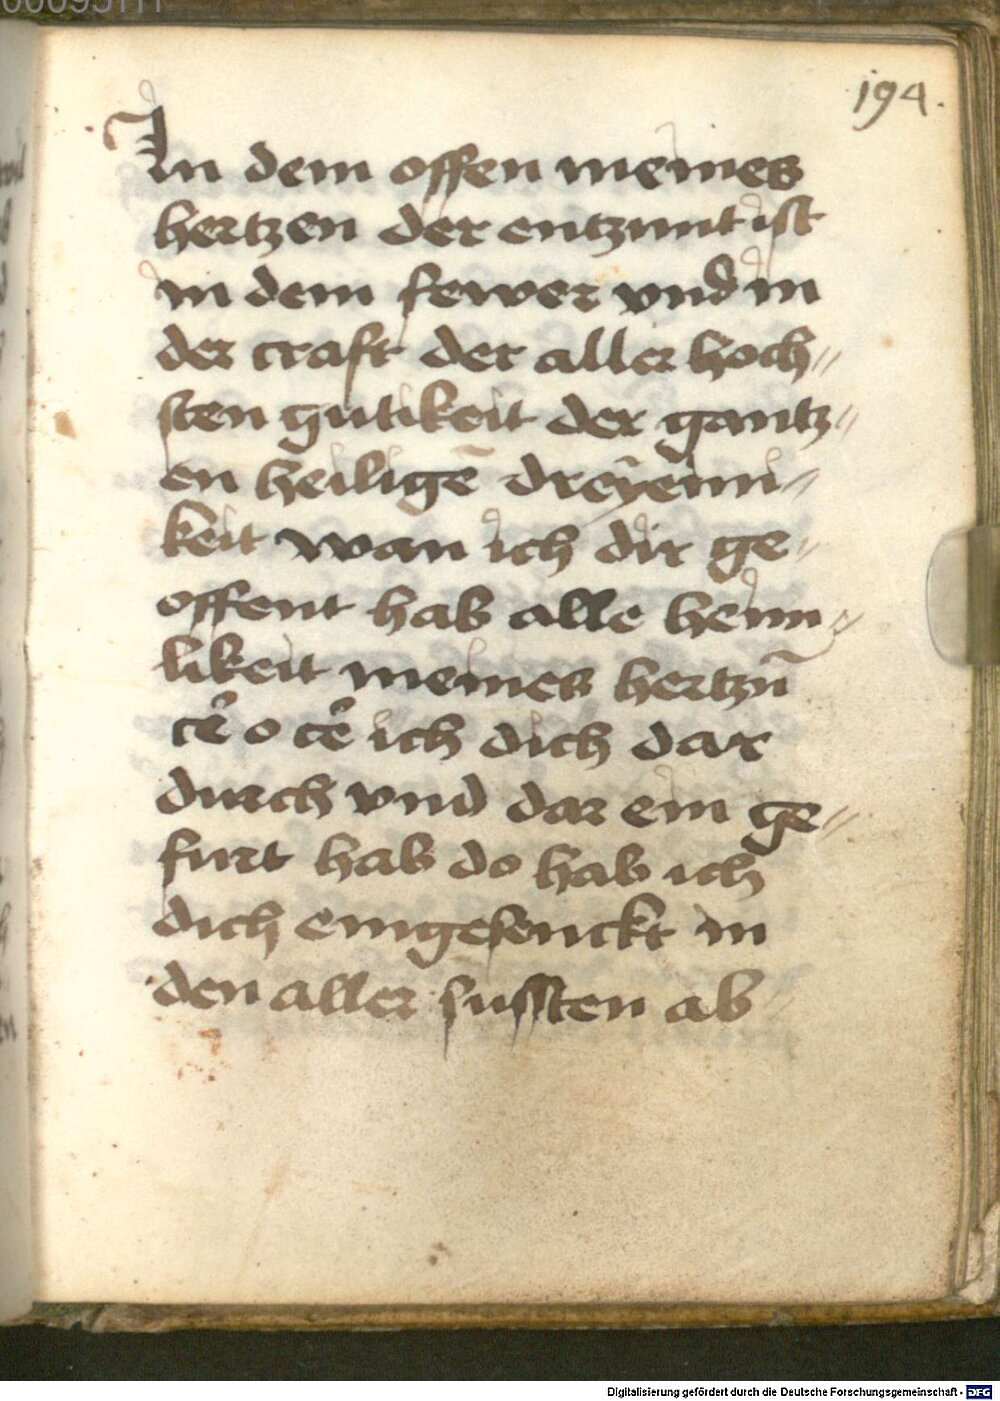 194.
In dem offen meines
hertzen der entzunt ist
in dem fewer vnd in
der craft der aller hoch=
sten gutikeit der gantz=
en heiligē dreÿeini=
keit wan ich dir ge=
offent hab alle heim=
likeit meines hertzn̄
cē o cē ich dich dar
durch vnd dar ein ge=
furt hab do hab ich
dich eingesenckt in
den aller sussten ab
Digitalisierung gefördert durch die Deutsche Forschungsgemeinschaft - DFG